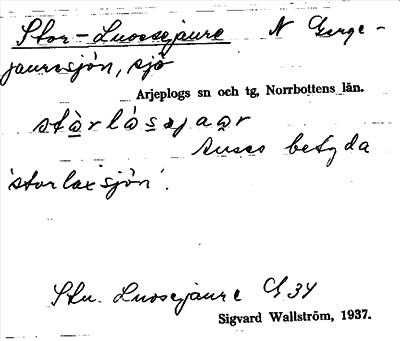 Stor-Luossejaure N Gerge-
jauressjön, sjö
Arjeplogs sn och tg, Norrbottens län.
stà̱rlás̱sjaa̱r
anses betyda
'storlaxsjön'.
Stu. Luossejaure G 34
Sigvard Wallström, 1937.